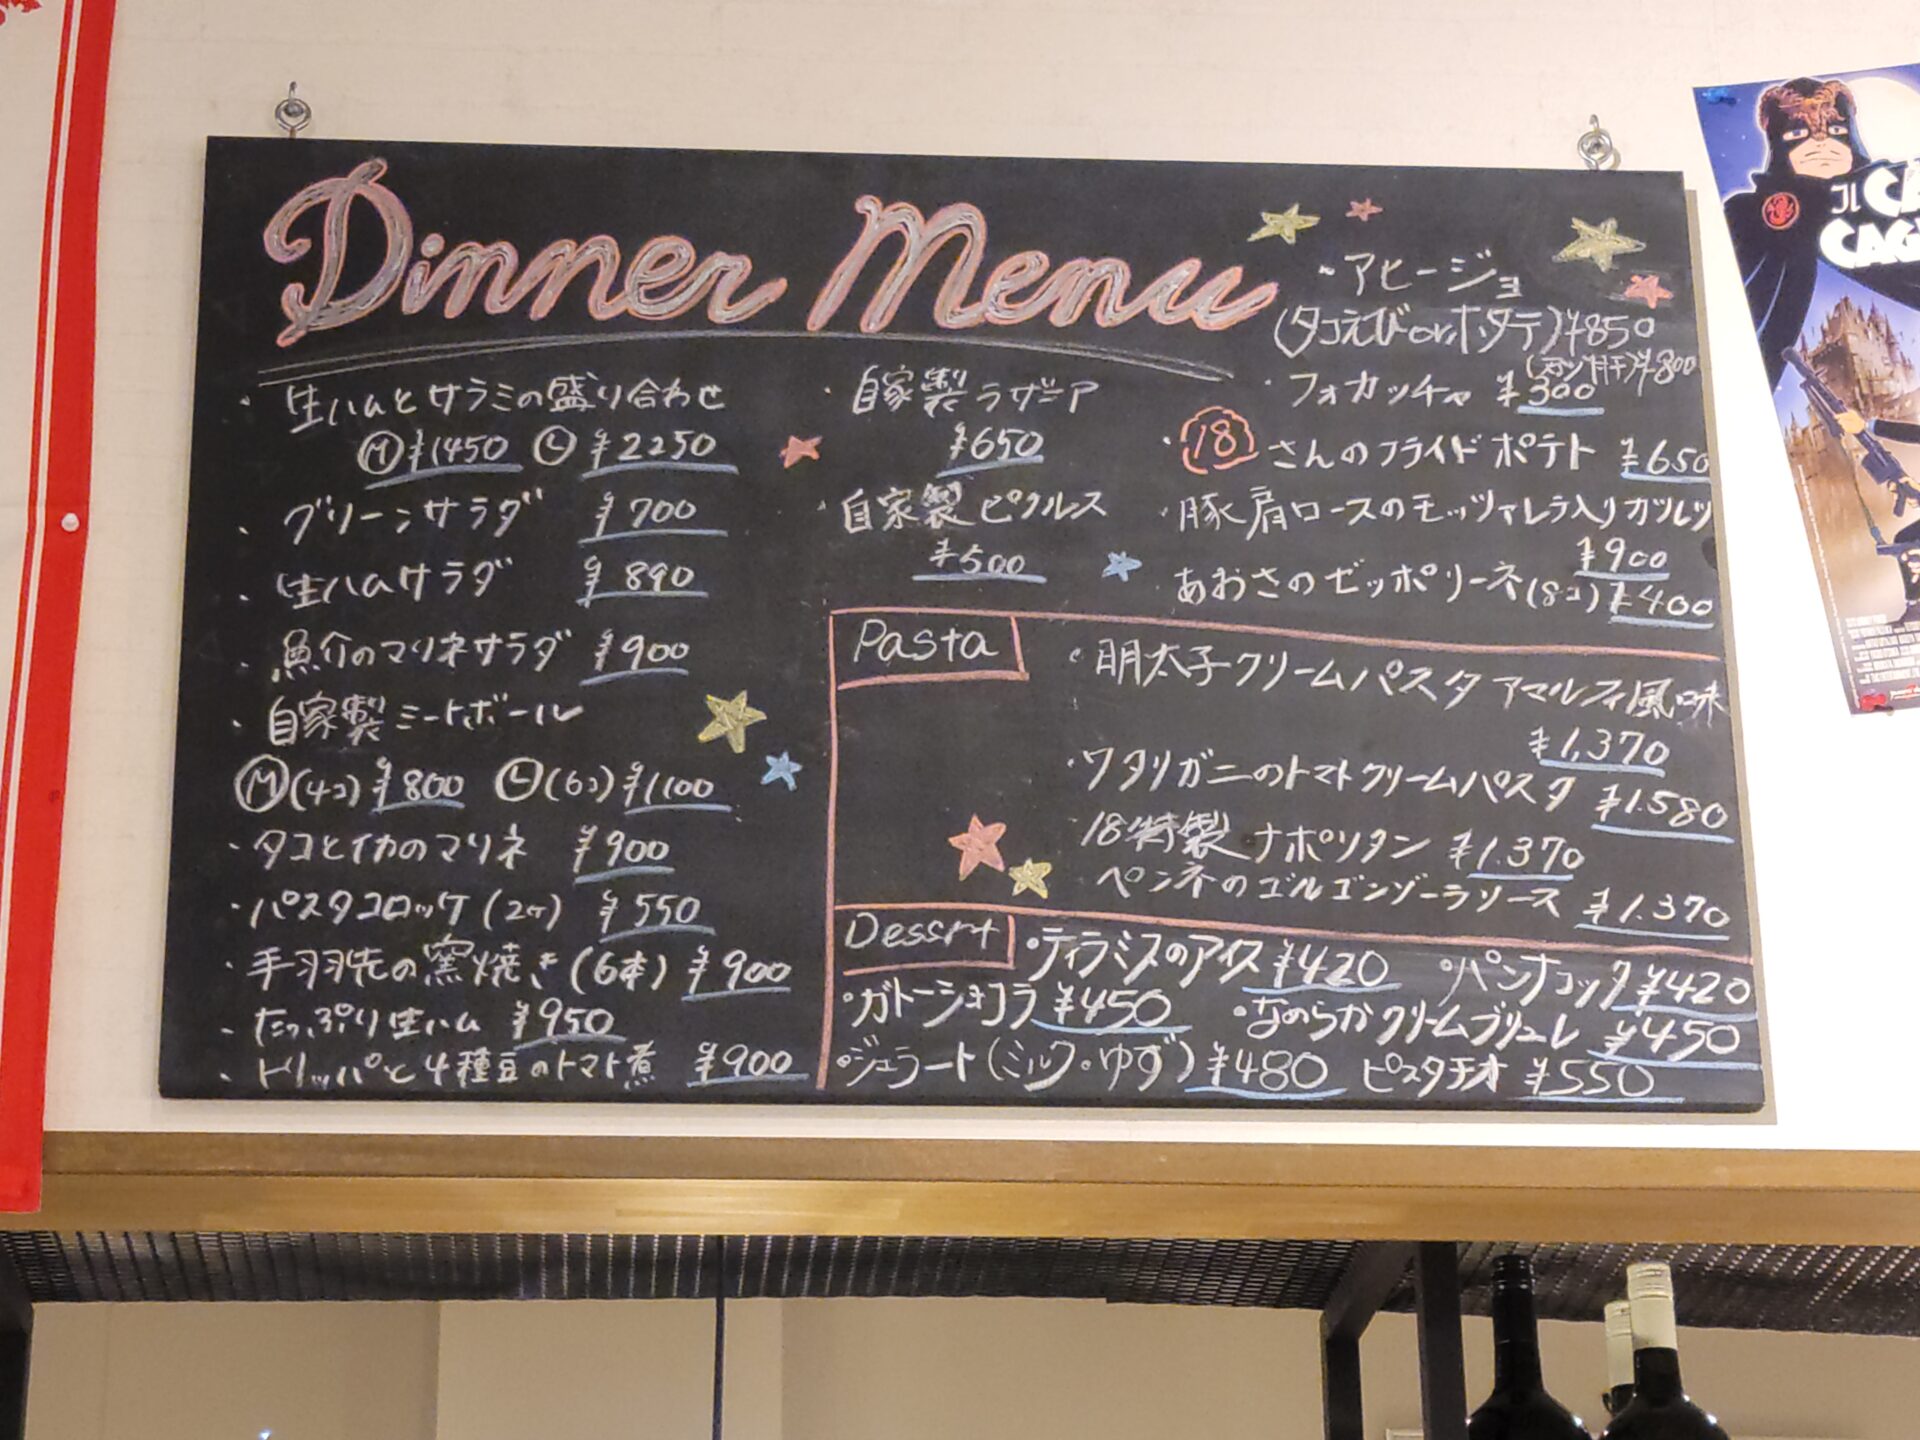 Dinner Menu
・生ハムとサラミの盛り合わせ
Ⓜ ¥1450 Ⓛ ¥2250
・グリーンサラダ ¥700
・生ハムサラダ ¥890
・魚介のマリネサラダ ¥900
・自家製ミートボール
Ⓜ(4コ) ¥800 Ⓛ(6コ) ¥1100
・タコとイカのマリネ ¥900
・パスタコロッケ(2ヶ) ¥550
・手羽先の窯焼き(6本) ¥900
・たっぷり生ハム ¥950
・トリッパと4種豆のトマト煮 ¥900
・自家製ラザニア
¥650
・自家製ピクルス
¥500
・アヒージョ
(タコえびorホタテ)¥850
¥800
・フォカッチャ ¥300
・18さんのフライドポテト ¥650
・豚肩ロースのモッツァレラ入りカツレツ
¥900
あおさのゼッポリーネ(8コ) ¥400
Pasta
・明太子クリームパスタ アマルフィ風味
¥1,370
・ワタリガニのトマトクリームパスタ ¥1.580
18特製ナポリタン ¥1.370
ペンネのゴルゴンゾーラソース ¥1.370
Dessrt
・ティラミスのアイス ¥420 ・パンナコッタ ¥420
・ガトーショコラ ¥450 ・なめらかクリームブリュレ ¥450
・ジェラート(ミルク・ゆず) ¥480 ピスタチオ ¥550